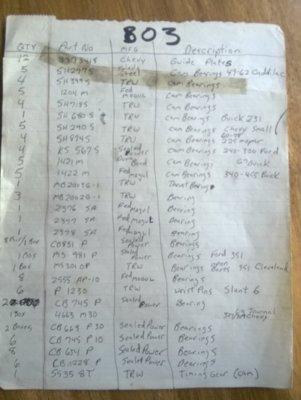 803
QTY Part No MFG Description
12 Chevy Guide Plates
5 SH 277S Steel Cam Bearings 49-62 Cadillac
4 SH 399S TRW Cam Bearing
5 1204 M Fed mogul Cam Bearings
4 SH 718S TRW Cam Bearings
1 SH 680 S TRW Cam Bearings Buick 231
5 SH 290 S TRW Cam Bearings Chevy Small
4 SH 874S TRW Cam Bearings
4 KS 567 S Cam Bearings
5 1421 M Bond Cam Bearings Buick
5 1422 M Fed mogul Cam Bearings 340-455 Buick
1 MB 2020G-1 TRW Thrust Bearing
3 MB 2020G-1 TRW Bearing
1 2376 SA Fed mogul Bearing
1 2377 SA Fed mogul Bearing
1 2378 SA Fed mogul Bearing
CB 831 P Sealed Power Bearings
1 Box MS 981 P Bearings Ford 351
1 Box MS 301 P TRW Bearings 351 Cleveland
8 2555 AP-10 Fed mogul Bearings
6 P 1230 TRW Wrist Pins Slant 6
CB 745 P Sealed Power Bearing
1 Box 4663 M30 Journal
2 Boxes CB 663 P 30 Sealed Power Bearings
6 CB 745 P 10 Sealed Power Bearings
8 CB 634 P Sealed Power Bearings
6 CB 1228 P Sealed Power Bearings
1 5535 8T TRW Timing Gear (Cam)